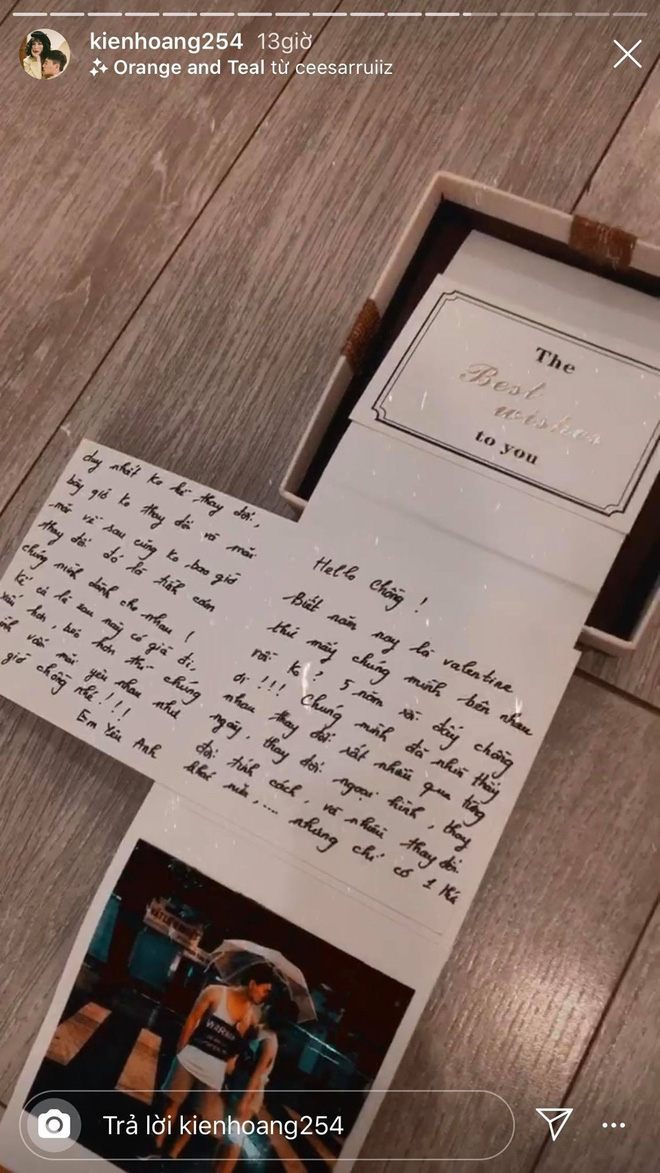 kienhoang254 13giờ
Orange and Teal từ ceesarruiiz
The
Best
wishes
to you
Hello Chồng !
Biết năm nay là valentine
thứ mấy chúng mình bên nhau
rồi ko ? 5 năm rồi đấy chồng
ơi !!! Chúng mình đã nhìn thấy
nhau thay đổi rất nhiều qua từng
ngày, thay đổi ngoại hình, thay
đổi tính cách, và nhiều thay đổi
khác nữa, .... nhưng chỉ có 1 thứ
duy nhất ko hề thay đổi,
bây giờ ko thay đổi và mãi
mãi về sau cũng ko bao giờ
thay đổi đó là tình cảm
chúng mình dành cho nhau !
kể cả là sau này có già đi,
xấu hơn, béo hơn thì chúng
mình vẫn mãi yêu nhau như
giờ chồng nhé !!!
Em Yêu Anh
Trả lời kienhoang254